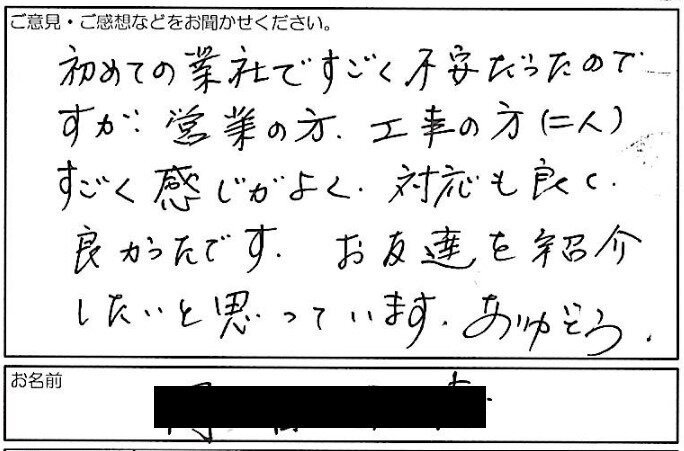 ご意見・ご感想などをお聞かせください。
初めての業社ですごく不安だったので
すが、営業の方、工事の方(二人)
すごく感じがよく、対応も良くて
良かったです。お友達を紹介
したいと思っています。ありがとう。
お名前